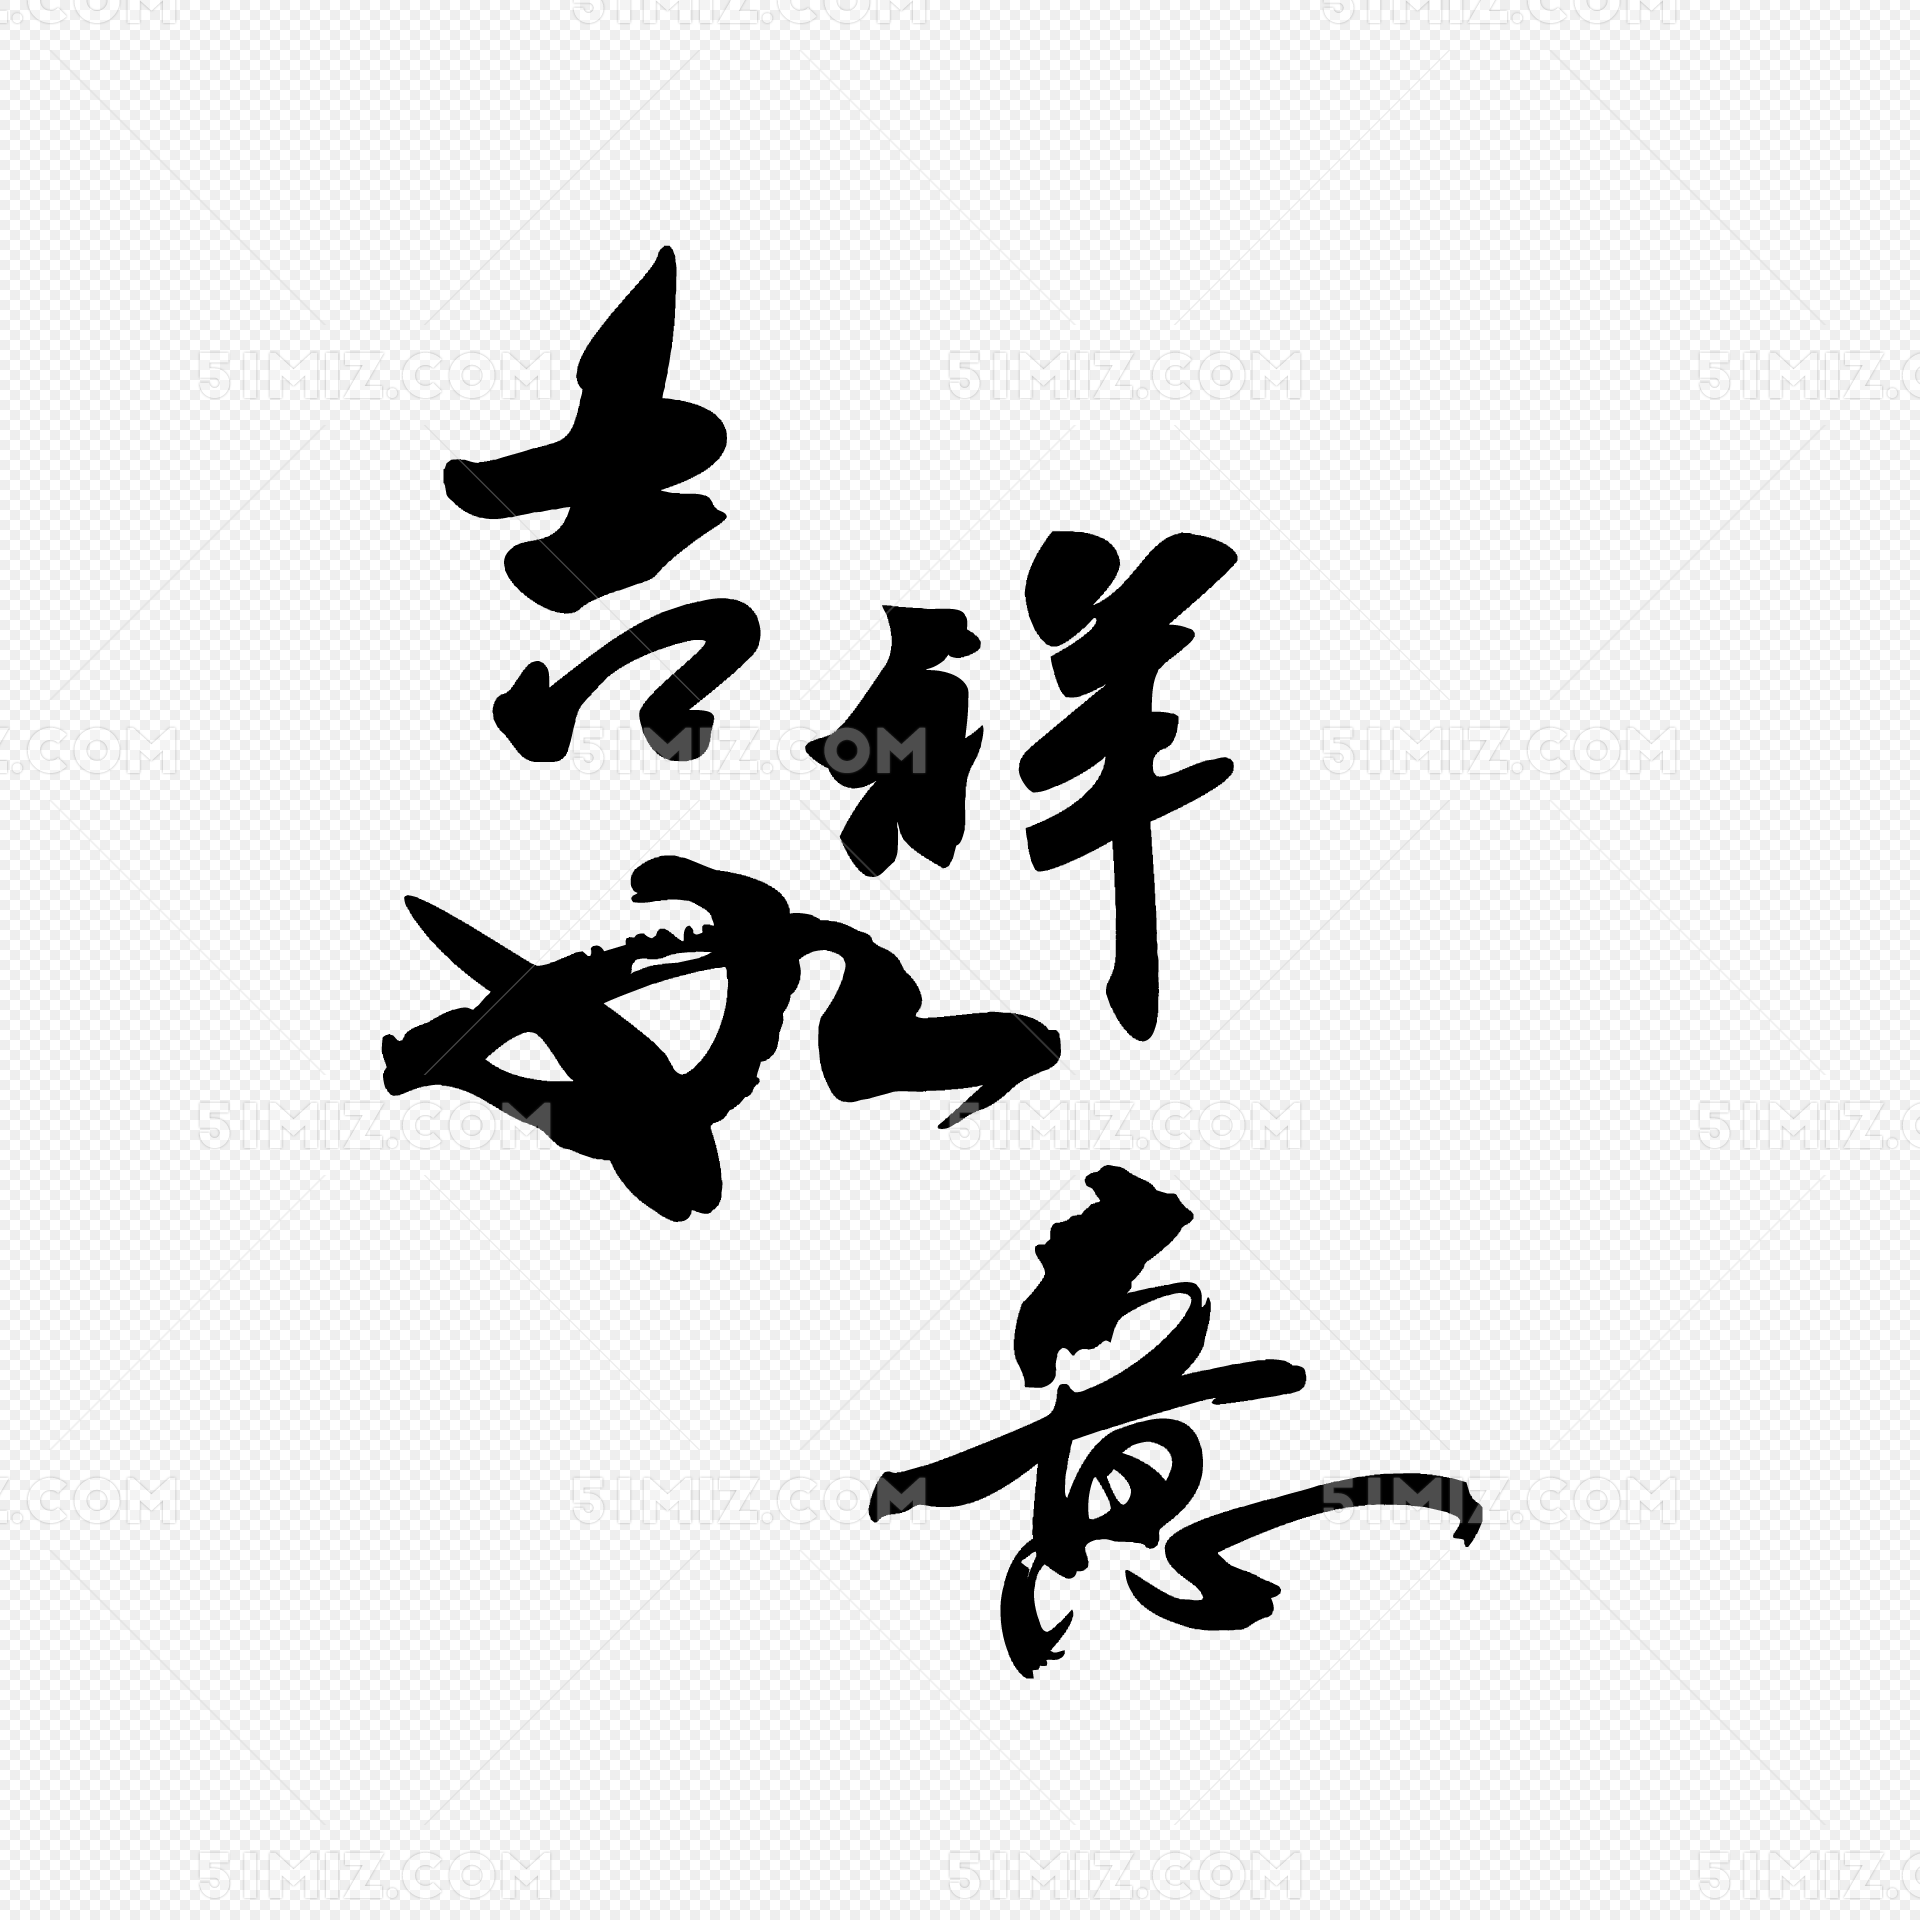 吉祥
如意
51MIZ.COM